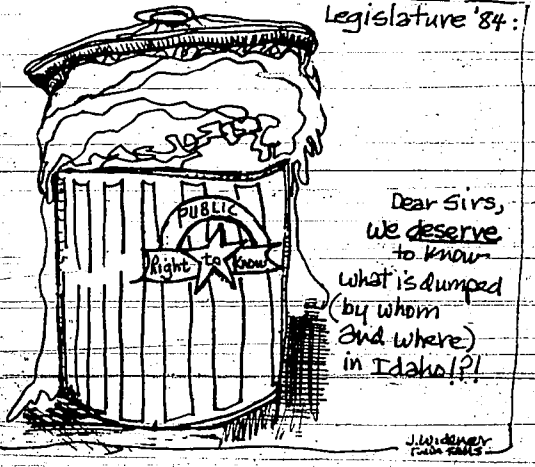 Legislature '84:
PUBLIC
Right to Know
Dear Sirs,
we deserve
to know
what is dumped
(by whom
and where)
in Idaho!?!
J. Widener
Twin Falls